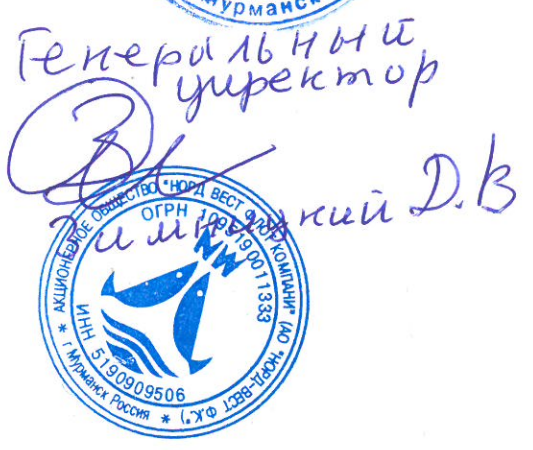 Мурманск
Генеральный
директор
Зимницкий Д.В
АКЦИОНЕРНОЕ ОБЩЕСТВО "НОРД ВЕСТ Ф.КОМПАНИ" (АО "НОРД-ВЕСТ Ф.К.")
* г Мурманск Россия *
ОГРН
ИНН 5190909506
NW